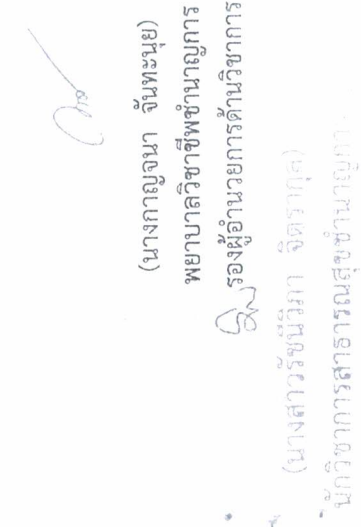 (นางกาญจนา จันทะนุย)
พยาบาลวิชาชีพชำนาญการ
รองผู้อำนวยการด้านวิชาการ
(นางสาวรัชนีวิภา จิตรากุล)
นักวิชาการสาธารณสุขชำนาญการ